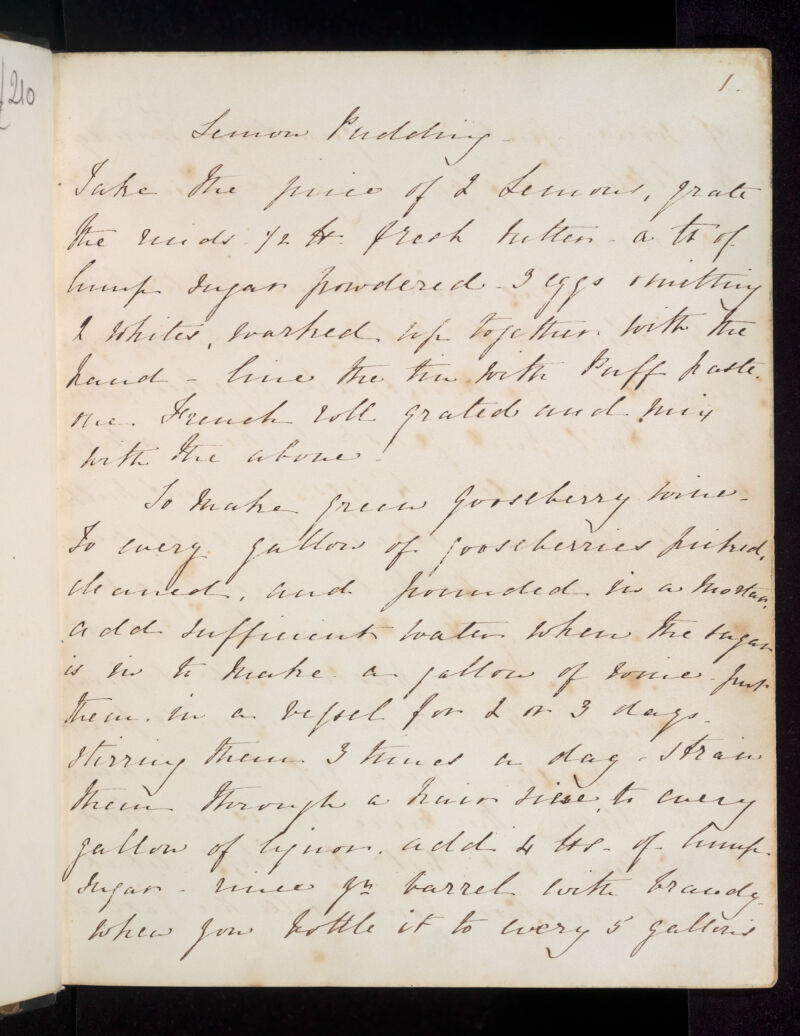 210
1.
Lemon Pudding -
Take the juice of 2 Lemons, grate
the rinds - 1/2 lb. fresh butter - a lb of
lump sugar powdered - 3 eggs omitting
2 whites, worked up together with the
hand - line the tin with Puff paste.
one French roll grated and mix
with the above -
To make green Gooseberry wine -
To every gallon of gooseberries picked,
cleaned, and pounded in a mortar,
add sufficient water when the sugar
is in to make a gallon of wine - put
them in a vessel for 2 or 3 days -
stirring them 3 times a day - strain
them through a hair sieve, to every
gallon of liquor add 4 lbs - of lump
sugar - rince yr barrel with brandy -
when you bottle it to every 5 gallons